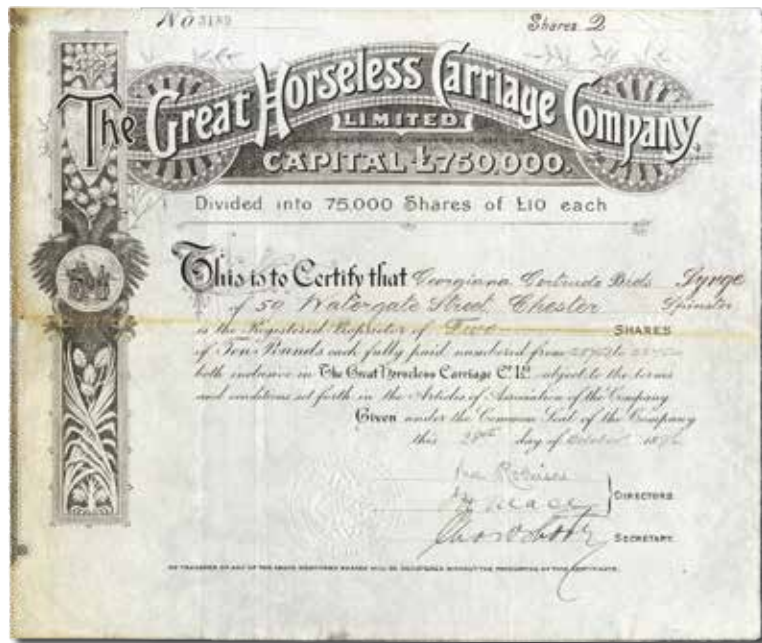 No 3189 Shares 2
The Great Horseless Carriage Company
LIMITED
CAPITAL £750,000.
Divided into 75,000 Shares of £10 each
This is to Certify that Georgiana Gertrude Birds Tyrge
of 50 Watergate Street, Chester Spinster
is the Registered Proprietor of Two SHARES
of Ten Pounds each fully paid numbered from to
both inclusive in The Great Horseless Carriage Co. Ld. subject to the terms
and conditions set forth in the Articles of Association of the Company
Given under the Common Seal of the Company
this 28th day of October 1896
DIRECTORS
SECRETARY
NO TRANSFER OF ANY OF THE ABOVE MENTIONED SHARES WILL BE REGISTERED WITHOUT THE PRODUCTION OF THIS CERTIFICATE.